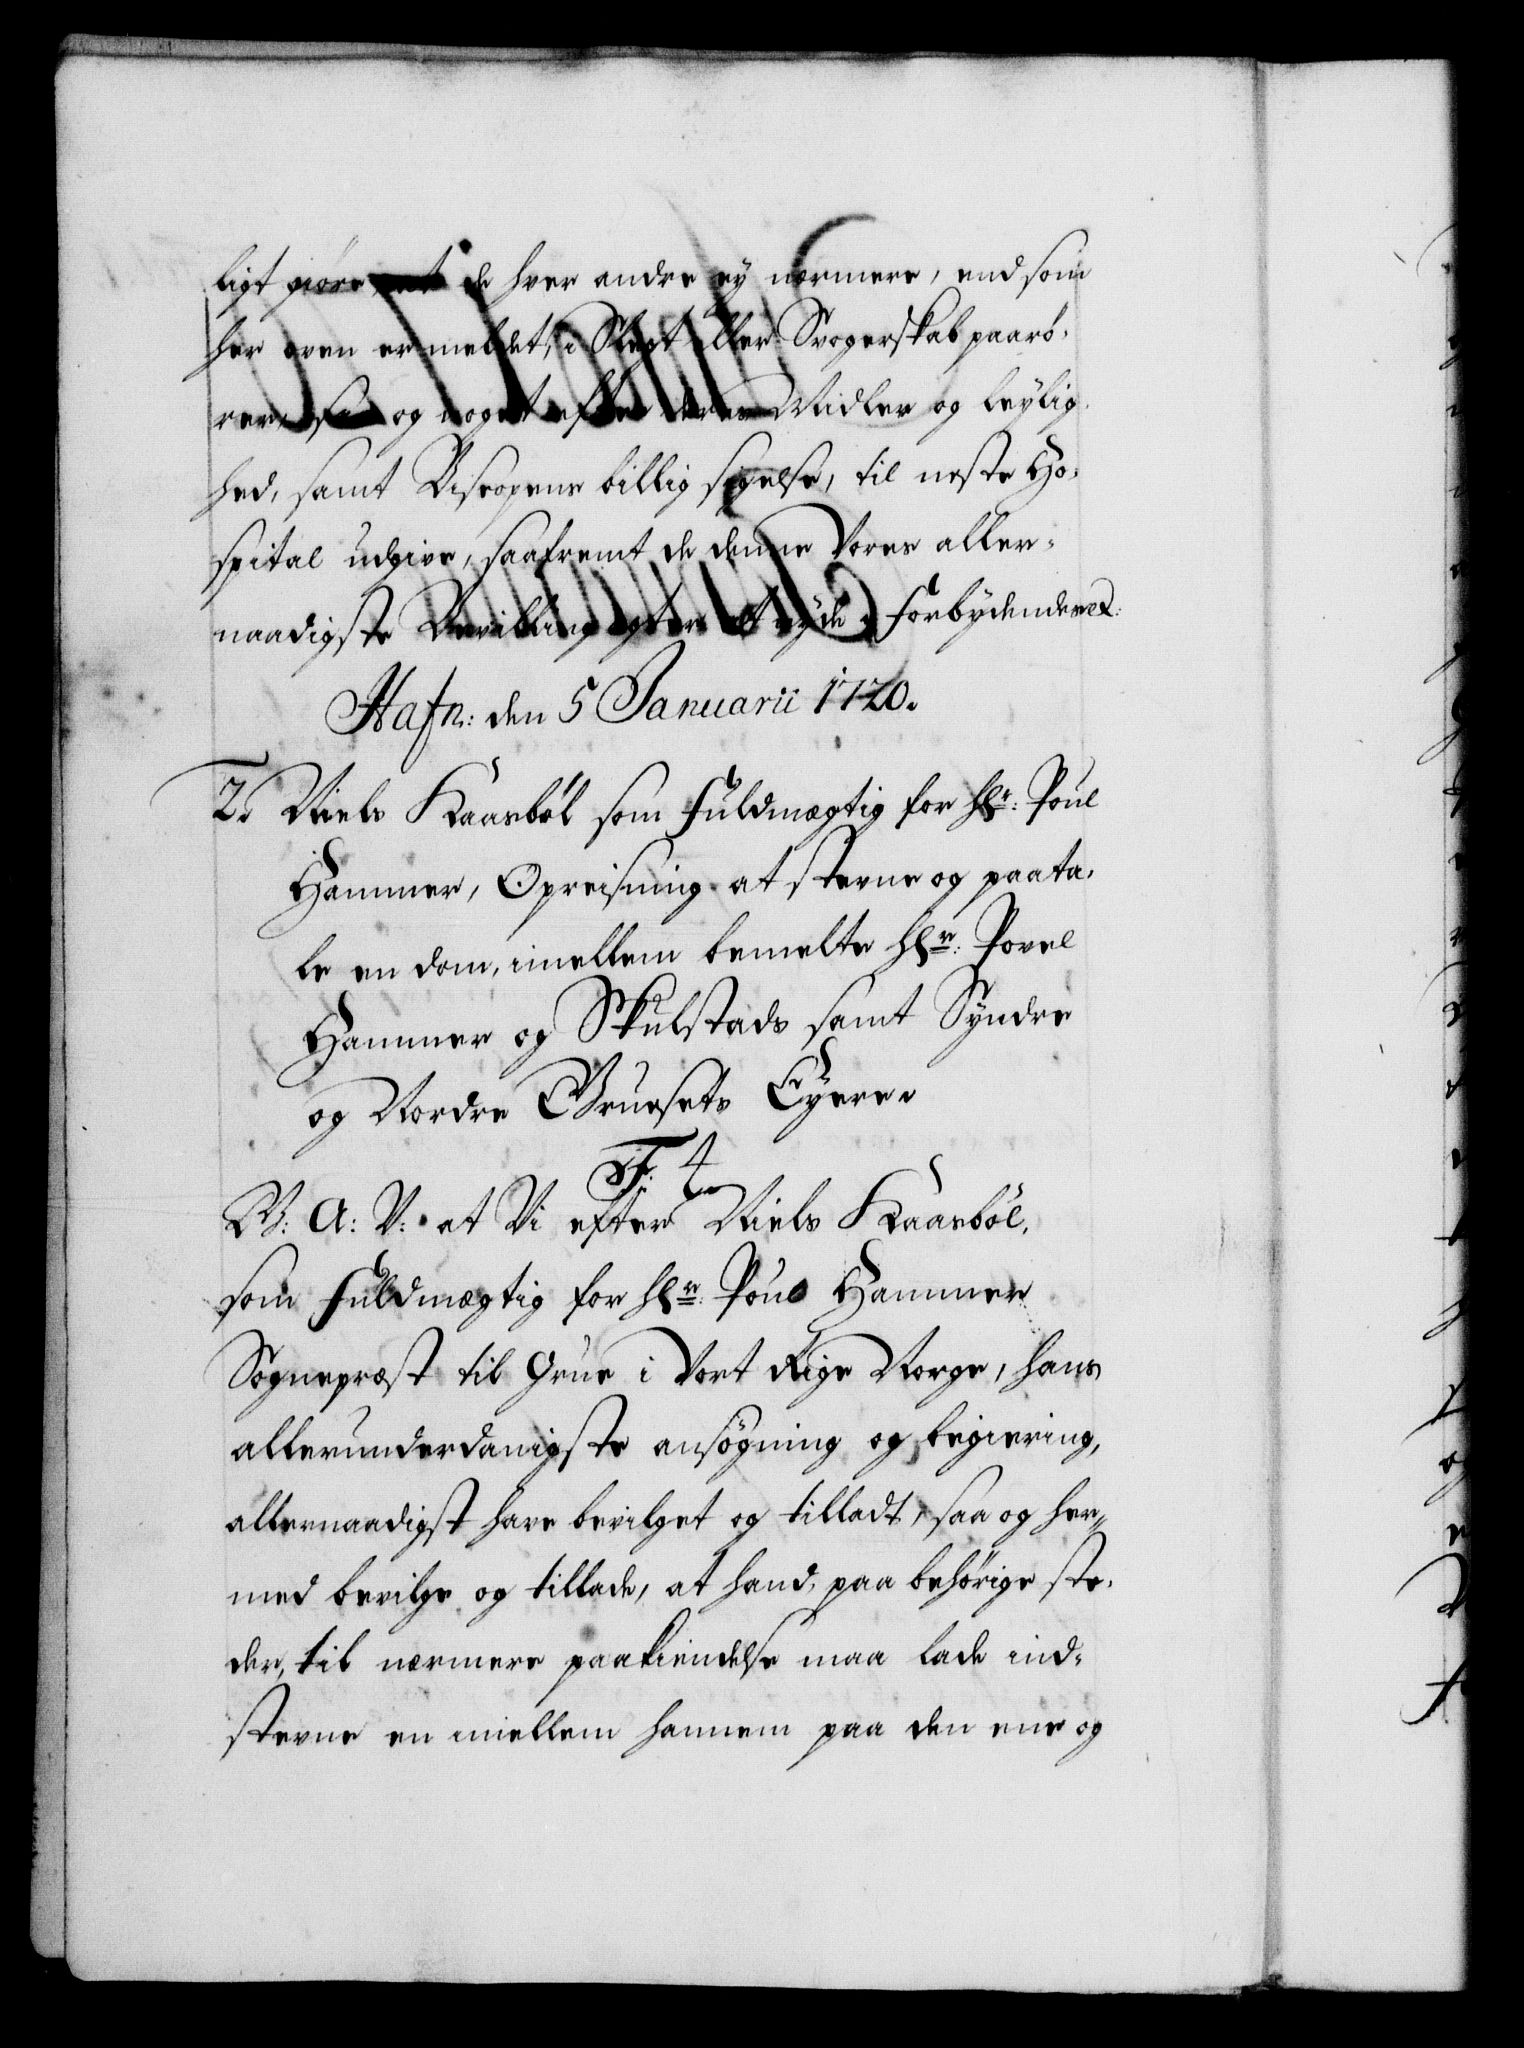 ligt giøre, at de hver andre ey nærmere, end som
her oven ermeldet, i Slegt eller Svogerskab paarø-
rer, saa og noget efter deres Midler og leylig-
hed, samt Biscopens billig sigelse, til neste Ho-
spital udgive, saafremt de denne Vores aller-
naadigste Bevilling agter at nyde, Forbydendes &:
Hafn: den 5 Januarii 1720.
2. Niels Kaasbøl som Fuldmægtig for Hr: Poul
Hammer, Opreisning at stevne og paata-
le en dom, imellem bemelte Hr: Povel
Hammer og Skulstads samt Syndre
og Nordre Gruesets Eyere.
F: 4
G: A: V: at Vi efter Niels Kaasbøl,
som Fuldmægtig for Hr: Poul Hammer
Sognepræst til Grue i Vort Rige Norge, hans
allerunderdanigste ansøgning og begiering,
allernaadigst have bevilget og tilladt, saa og her-
med bevilge og tillade, at hand, paa behørige ste-
der, til nærmere paakiendelse maa lade ind-
stevne en imellem hannem paa den ene og